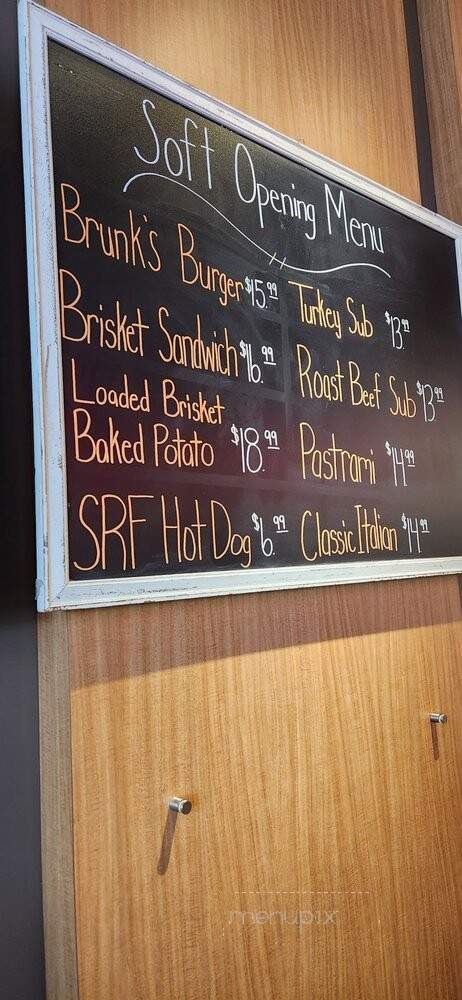 Soft Opening Menu
Brunk's Burger $15.99
Brisket Sandwich $16.99
Loaded Brisket
Baked Potato $18.99
SRF Hot Dog $6.99
Turkey Sub $13.99
Roast Beef Sub $13.99
Pastrami $14.99
Classic Italian $14.99
menupix